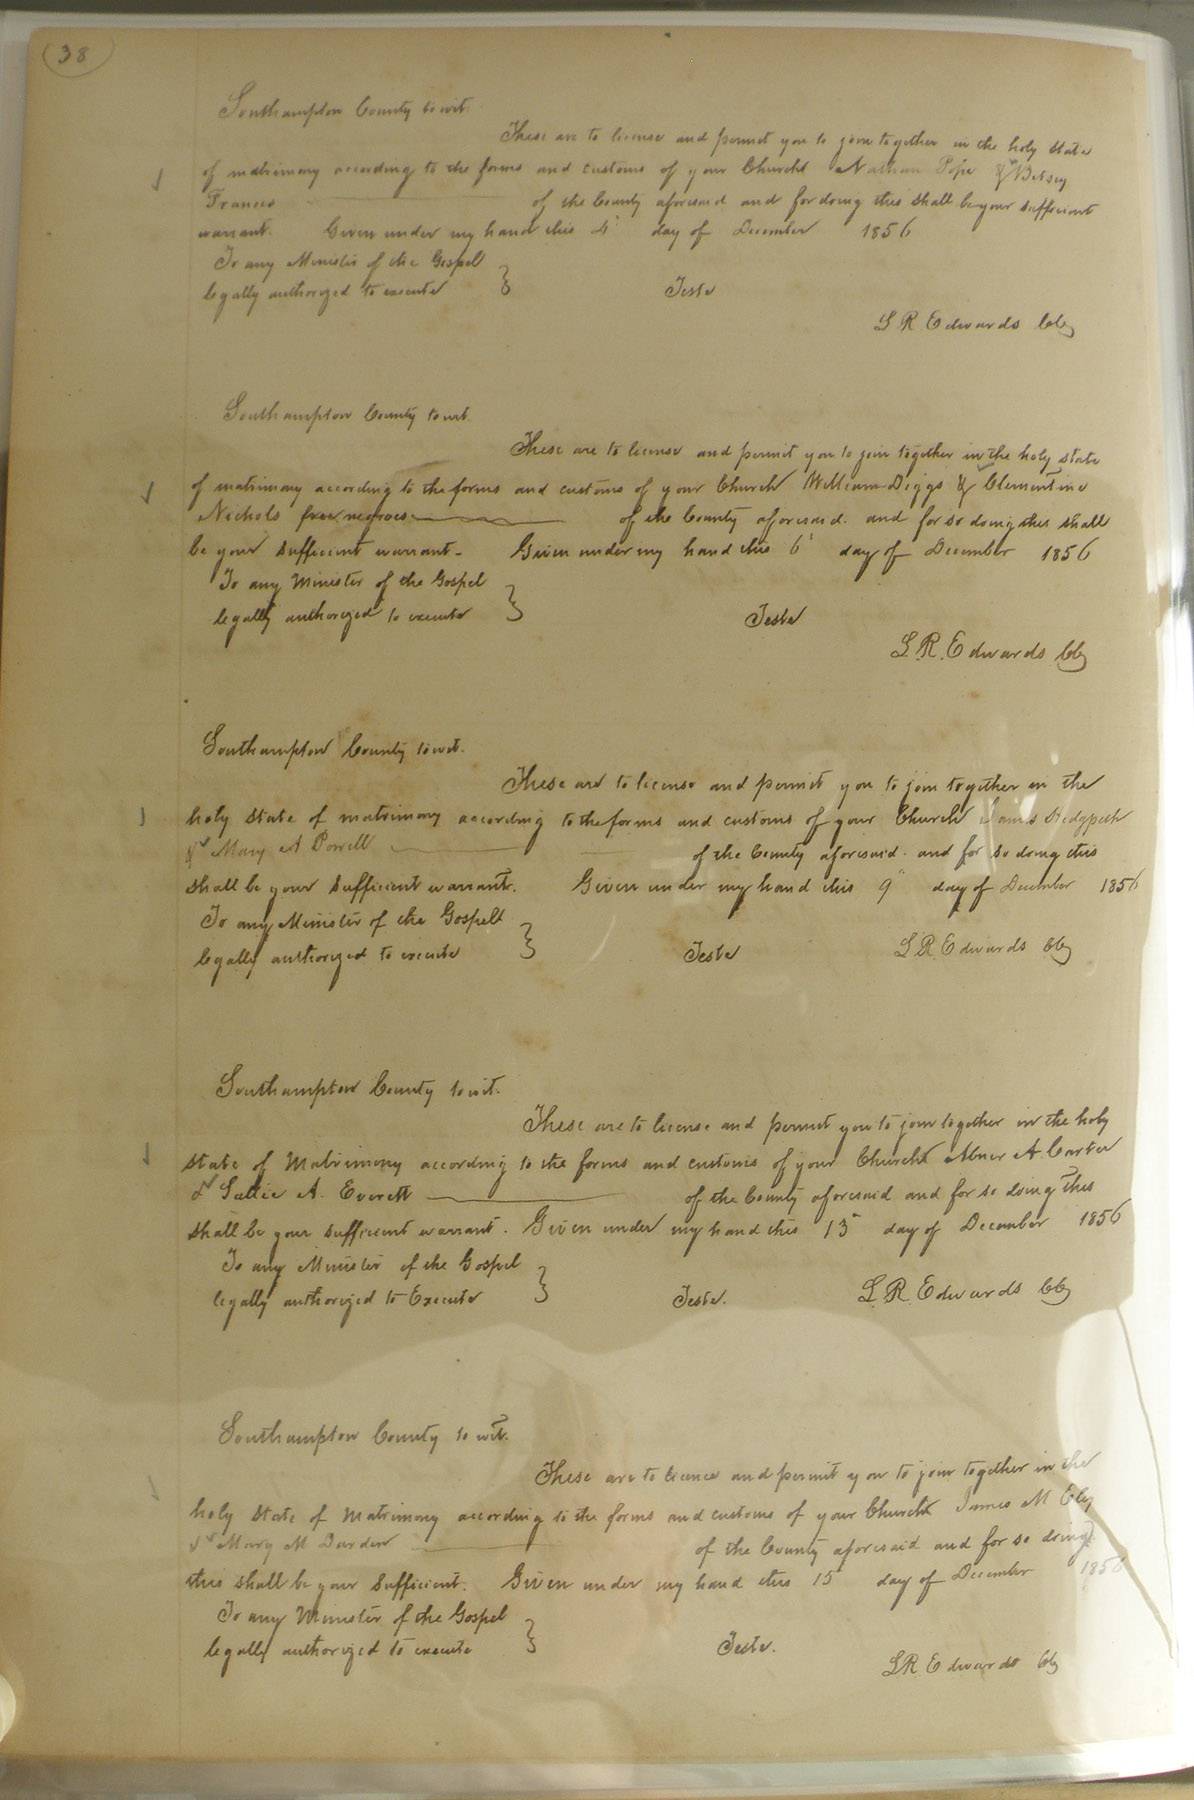 38
Southampton County to wit.
These are to license and permit you to join together in the holy state
of matrimony according to the forms and customs of your Church Nathan Pope & Betsey
Frances of the County aforesaid and for doing this shall be your sufficient
warrant. Given under my hand this 4 day of December 1856
To any Minister of the Gospel
legally authorized to execute } Teste
S R Edwards Clk
Southampton County to wit.
These are to license and permit you to join together in the holy state
of matrimony according to the forms and customs of your Church William Diggs & Clementine
Nichols free negroes of the County aforesaid. and for so doing this shall
be your sufficient warrant - Given under my hand this 6 day of December 1856
To any Minister of the Gospel
legally authorized to execute } Teste
S. R. Edwards Clk
Southampton County to wit.
These are to license and permit you to join together in the
holy state of matrimony according to the forms and customs of your Church James Hedgpeth
& Mary A Powell of the County aforesaid. and for so doing this
shall be your sufficient warrant. Given under my hand this 9" day of December 1856
To any Minister of the Gospel
legally authorized to execute } Teste S R Edwards Clk
Southampton County to wit.
These are to license and permit you to join together in the holy
state of Matrimony according to the forms and customs of your Church Abner A. Carter
& Sallie A. Everett of the County aforesaid and for so doing this
shall be your sufficient warrant. Given under my hand this 13 day of December 1856
To any Minister of the Gospel
legally authorized to Execute } Teste. S. R. Edwards Clk
Southampton County to wit.
These are to licence and permit you to join together in the
holy state of Matrimony according to the forms and customs of your Church James M Eley
& Mary M Darden of the County aforesaid and for so doing
this shall be your Sufficient. Given under my hand this 15 day of December 1856
To any Minister of the Gospel
legally authorized to execute } Teste.
S R Edwards Clk